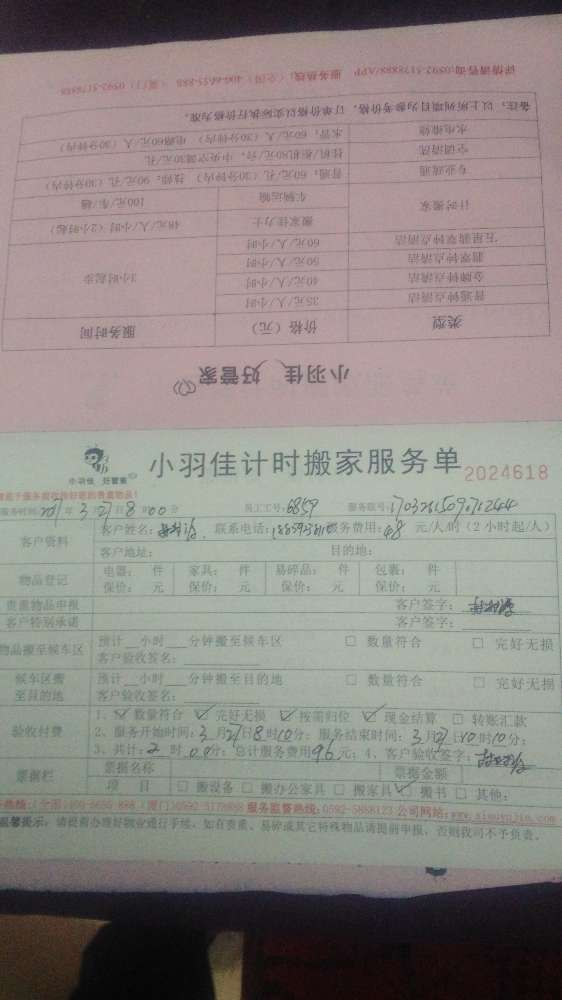 小羽佳 好管家
类型 价格（元） 服务时间
普通钟点清洁 35元/人/小时 3小时起步
金牌钟点清洁 40元/人/小时
翡翠钟点清洁 50元/人/小时
五星翡翠钟点清洁 60元/人/小时
计时搬家 搬家佳力士 48元/人/小时（2小时起）
车辆运输 100元/车/趟
专业疏通 普通：60元/孔（30分钟内） 60元/孔（30分钟内）
空调清洗 挂机/柜机80元/台，中央空调30元/孔
水电维修 水管：60元/人（30分钟内） 电路60元/人（30分钟内）
备注：以上所列项目为参考价格，订单价格以实际执行价格为准。
详情请咨询：0592-5178888/APP 服务热线：（全国）400-6655-888 （厦门）0592-5178888
小羽佳 好管家
小羽佳计时搬家服务单 2024618
服务时间： 3月21日8时00分 员工工号：6859 服务账号：
客户资料 客户姓名： 联系电话： 服务费用：48 元/人/时（2小时起/人）
客户地址： 目的地：
物品登记 电器： 件 家具： 件 易碎品： 件 包裹： 件
保价： 元 保价： 元 保价： 元 保价： 元
贵重物品申报 客户签字：
客户特别承诺 客户签字：
物品搬至候车区 预计__小时___分钟搬至候车区 □ 数量符合 □ 完好无损
客户验收签名：
候车区搬至目的地 预计__小时___分钟搬至目的地 □ 数量符合 □ 完好无损
客户验收签名：
验收付费 1、☑ 数量符合 ☑ 完好无损 ☑ 按需归位 ☑ 现金结算 □ 转账汇款
2、服务开始时间：3月21日8时10分；服务结束时间：3月21日10时10分；
3、共计：2时00分；总计服务费用96元；4、客户验收签字：
票据栏 票据名称 票据金额
项 目 □ 搬设备 □ 搬办公家具 □ 搬家具 ☑ 搬书 □ 其他：
热线：（全国）400-6655-888（厦门）0592-5178888 服务监督热线：0592-5888123 公司网站：www.xiaoyujia.com
温馨提示：请提前办理好物业通行手续，如有贵重、易碎或其它特殊物品请提前申报，否则我司不予负责。